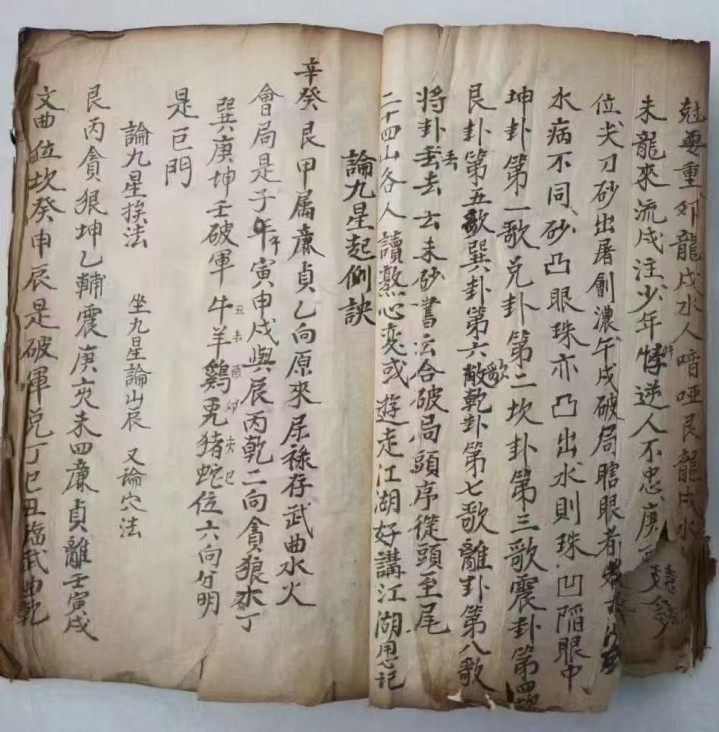 尅要重外龍戌水人喑啞艮龍戌水
未龍來流戌注少年悖逆人不忠庚
位尖刀砂出屠劊濃午戌破局瞎眼者
水病不同砂凸眼珠亦凸出水則珠凹陷眼中
坤卦第一歌兌卦第二坎卦第三歌震卦第四
艮卦第五歌巽卦第六歌乾卦第七歌離卦第八歌
將卦去去去未砂書云合破局頭序從頭至尾
二十四山各人讀熟心变或遊走江湖好講江湖思记
論九星起例訣
辛癸艮甲属廉貞乙向原來屬禄存武曲水火
會局是子午寅申戌與辰丙乾二向貪狼水丁
巽庚坤壬破軍牛羊鷄兎猪蛇位六向分明
丑未酉卯亥巳
是巨門
論九星挨法 坐九星論山辰 又論穴法
艮丙貪狼坤乙輔震庚亥未四廉貞離壬寅戌
文曲位坎癸申辰是破軍兌丁巳丑臨武曲乾